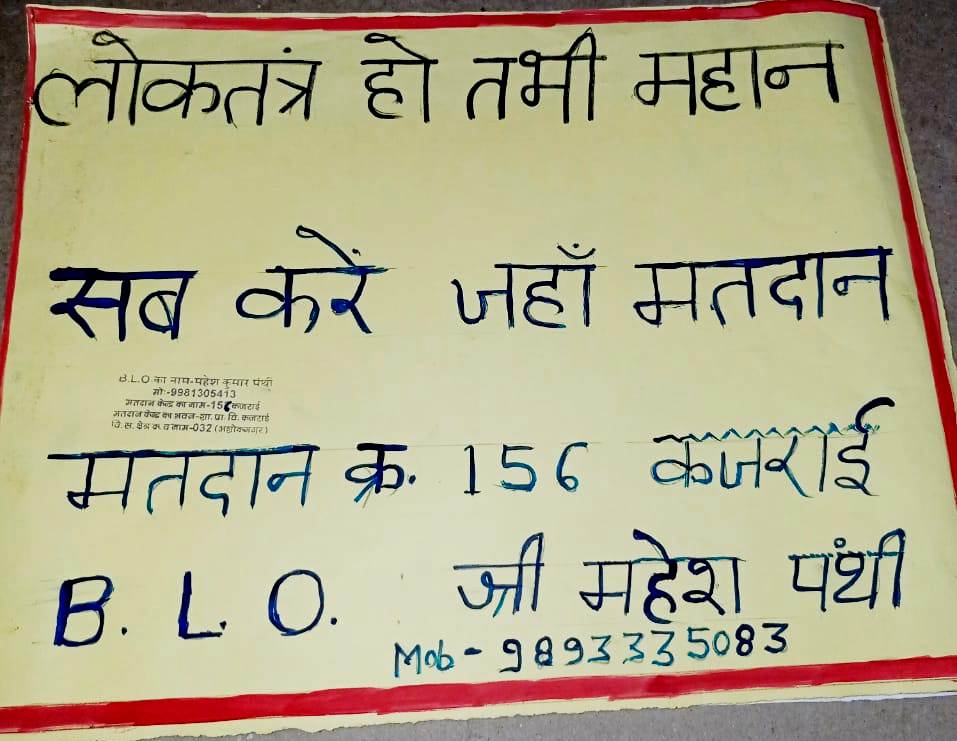 लोकतंत्र हो तभी महान
सब करें जहाँ मतदान
B.L.O का नाम-महेश कुमार पंथी
मो:-9981305413
मतदान केन्द्र का नाम-156 कजराई
मतदान केन्द्र का भवन-शा. प्रा. वि. कजराई
वि. स. क्षेत्र क्र. व नाम-032 (अशोकनगर)
मतदान क्र. 156 कजराई
B. L. O. श्री महेश पंथी
Mob - 9893335083